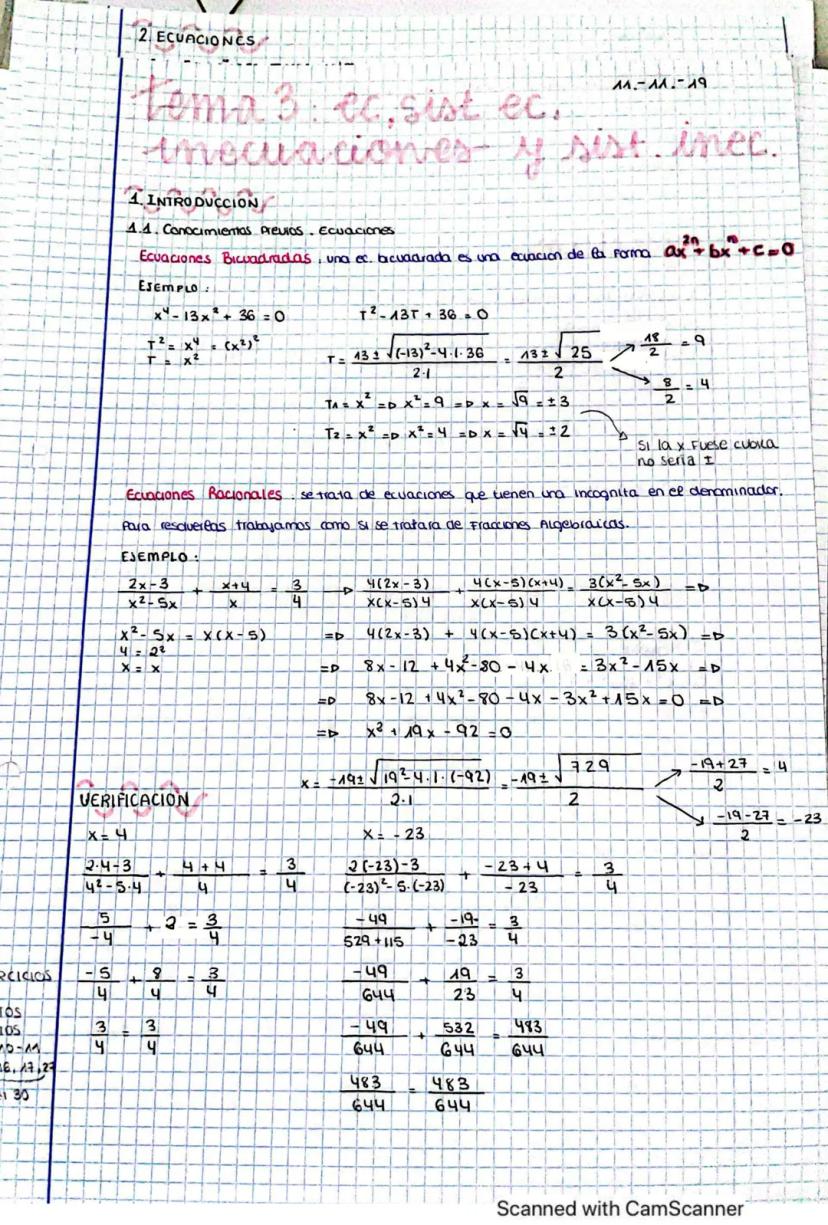 2. ECUACIONES
11.-11.-19
tema 3: ec, sist ec.
inecuaciones y sist. inec.
1. INTRODUCCIÓN
1.1. Conocimientos Previos. Ecuaciones
Ecuaciones Bicuadradas: una ec. bicuadrada es una ecuacion de la forma ax²ⁿ + bxⁿ + c = 0
EJEMPLO:
x⁴ - 13x² + 36 = 0 T² - 13T + 36 = 0
T² = x⁴ = (x²)²
T = x²
T = (13 ± √((-13)² - 4·1·36))/(2·1) = (13 ± √25)/2 → 18/2 = 9
→ 8/2 = 4
T1 = x² => x² = 9 => x = √9 = ±3
T2 = x² => x² = 4 => x = √4 = ±2
Si la x fuese cubica
no seria ±
Ecuaciones Racionales: se trata de ecuaciones que tienen una incognita en el denominador.
Para resolverlas trabajamos como si se tratara de Fracciones Algebraicas.
EJEMPLO:
(2x-3)/(x²-5x) + (x+4)/x = 3/4 => 4(2x-3)/(x(x-5)4) + 4(x-5)(x+4)/(x(x-5)4) = 3(x²-5x)/(x(x-5)4) =>
x² - 5x = x(x-5) => 4(2x-3) + 4(x-5)(x+4) = 3(x²-5x) =>
4 = 2²
x = x => 8x - 12 + 4x² - 80 - 4x = 3x² - 15x =>
=> 8x - 12 + 4x² - 80 - 4x - 3x² + 15x = 0 =>
=> x² + 19x - 92 = 0
x = (-19 ± √(19² - 4·1·(-92)))/(2·1) = (-19 ± √729)/2 → (-19+27)/2 = 4
→ (-19-27)/2 = -23
VERIFICACIÓN
x = 4 x = -23
(2·4-3)/(4²-5·4) + (4+4)/4 = 3/4 (2(-23)-3)/((-23)²-5·(-23)) + (-23+4)/(-23) = 3/4
5/(-4) + 2 = 3/4 -49/(529+115) + -19/-23 = 3/4
-5/4 + 8/4 = 3/4 -49/644 + 19/23 = 3/4
3/4 = 3/4 -49/644 + 532/644 = 483/644
483/644 = 483/644
RCICIOS
10-11
30
Scanned with CamScanner